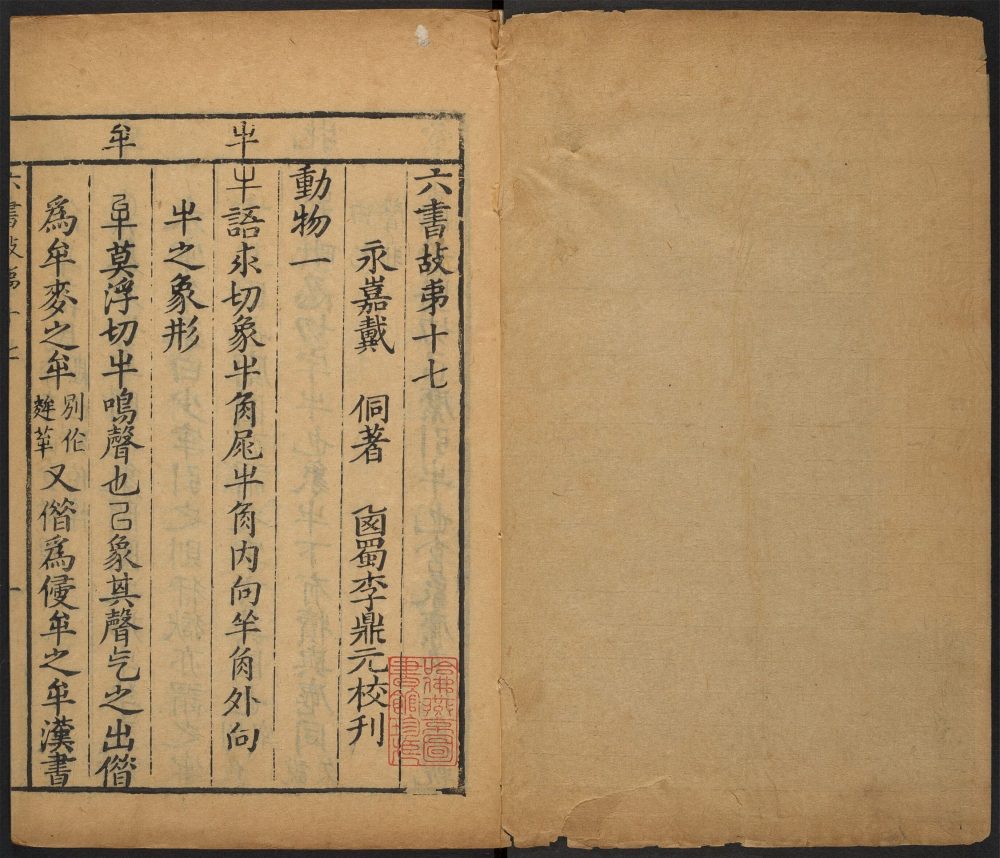 六書故弟十七
永嘉戴　侗著　西蜀李鼎元校刊
動物一
牛
牛語求切象牛角尾牛角内向羊角外向
牛之象形
牟
牟莫浮切牛鳴聲也㠯象其聲气之出偕
爲牟麥之牟別作䴾萆又偕爲侵牟之牟漢書
六書故弟十七
一
哈佛燕京圖
書館珍藏